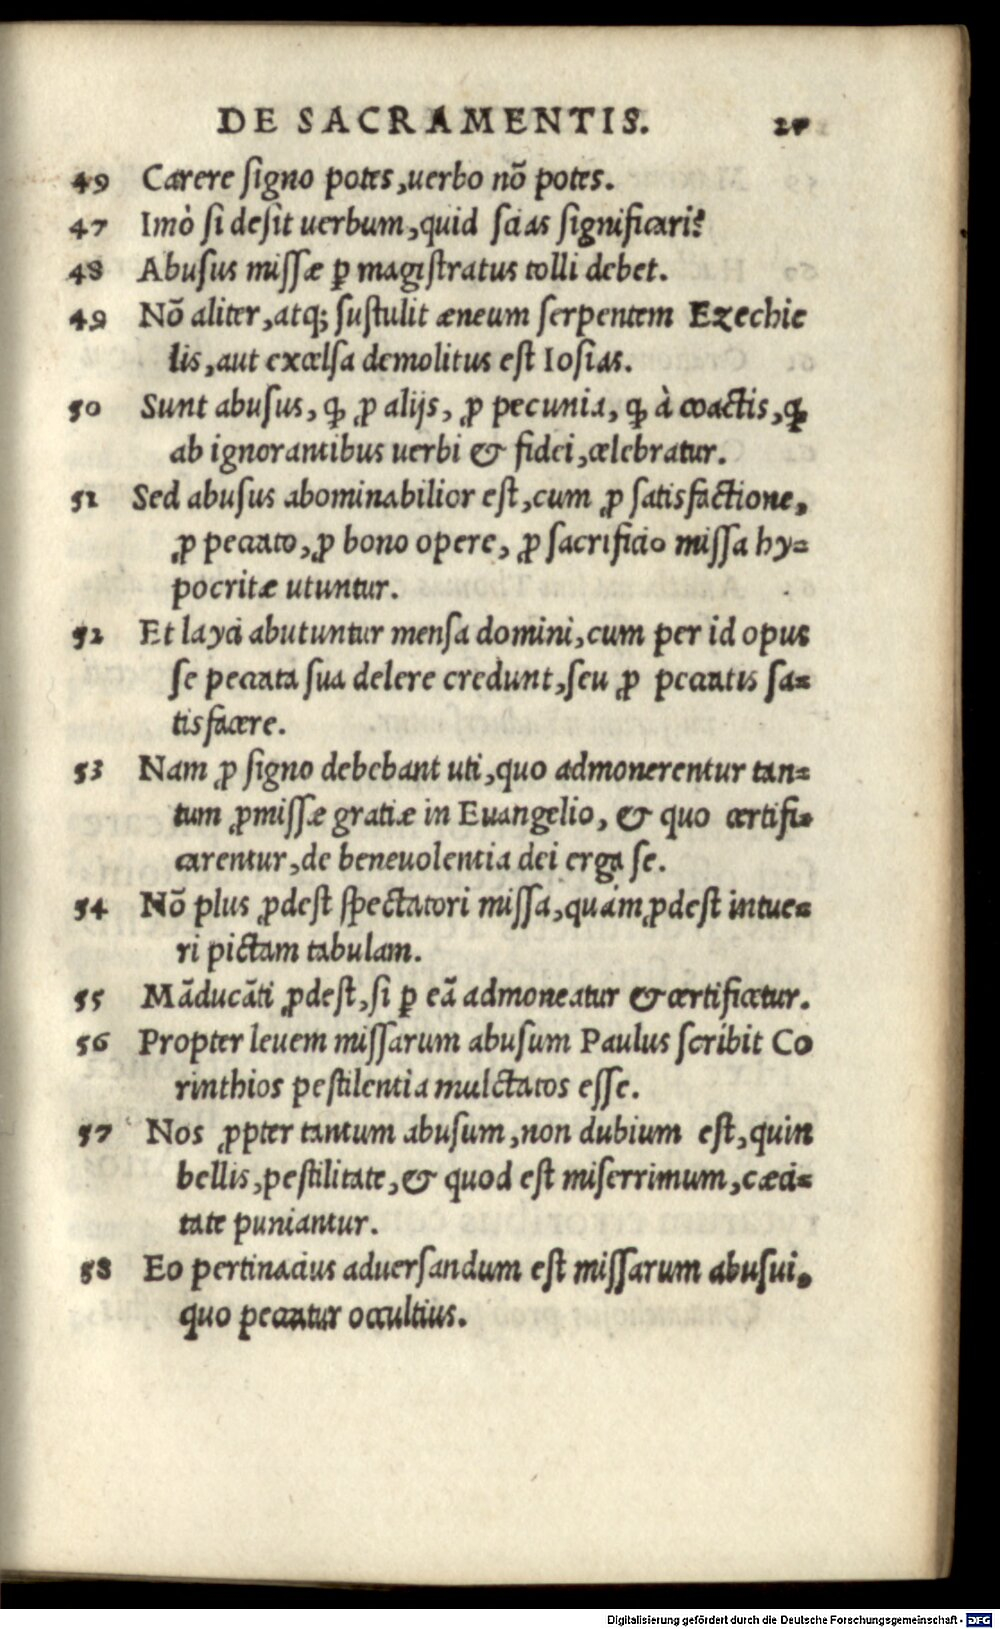 DE SACRAMENTIS.
49 Carere ſigno potes, uerbo nõ potes.
47 Imò ſi deſit uerbum, quid ſcias ſignificari?
48 Abuſus miſſæ ꝑ magiſtratus tolli debet.
49 Nõ aliter, atq; ſuſtulit æneum ſerpentem Ezechie
lis, aut excelſa demolitus eſt Ioſias.
50 Sunt abuſus, ꝙ ꝓ alijs, ꝓ pecunia, ꝙ à coactis, ꝙ
ab ignorantibus uerbi & fidei, celebratur.
51 Sed abuſus abominabilior eſt, cum ꝓ ſatisfactione,
ꝓ peccato, ꝓ bono opere, ꝓ ſacrificio miſſa hy=
pocritæ utuntur.
52 Et layci abutuntur menſa domini, cum per id opus
ſe peccata ſua delere credunt, ſeu ꝓ peccatis ſa=
tisfacere.
53 Nam ꝓ ſigno debebant uti, quo admonerentur tan=
tum ꝓmiſſæ gratiæ in Euangelio, & quo certifi=
carentur, de beneuolentia dei erga ſe.
54 Nõ plus ꝓdeſt ſpectatori miſſa, quàm ꝓdeſt intue=
ri pictam tabulam.
55 Mãducãti ꝓdeſt, ſi ꝑ eã admoneatur & certificetur.
56 Propter leuem miſſarum abuſum Paulus ſcribit Co
rinthios peſtilentia mulctatos eſſe.
57 Nos ꝓpter tantum abuſum, non dubium eſt, quin
bellis, peſtilitate, & quod eſt miſerrimum, cæci=
tate puniantur.
58 Eo pertinacius aduerſandum eſt miſſarum abuſui,
quo peccatur occultius.
Digitalisierung gefördert durch die Deutsche Forschungsgemeinschaft - DFG